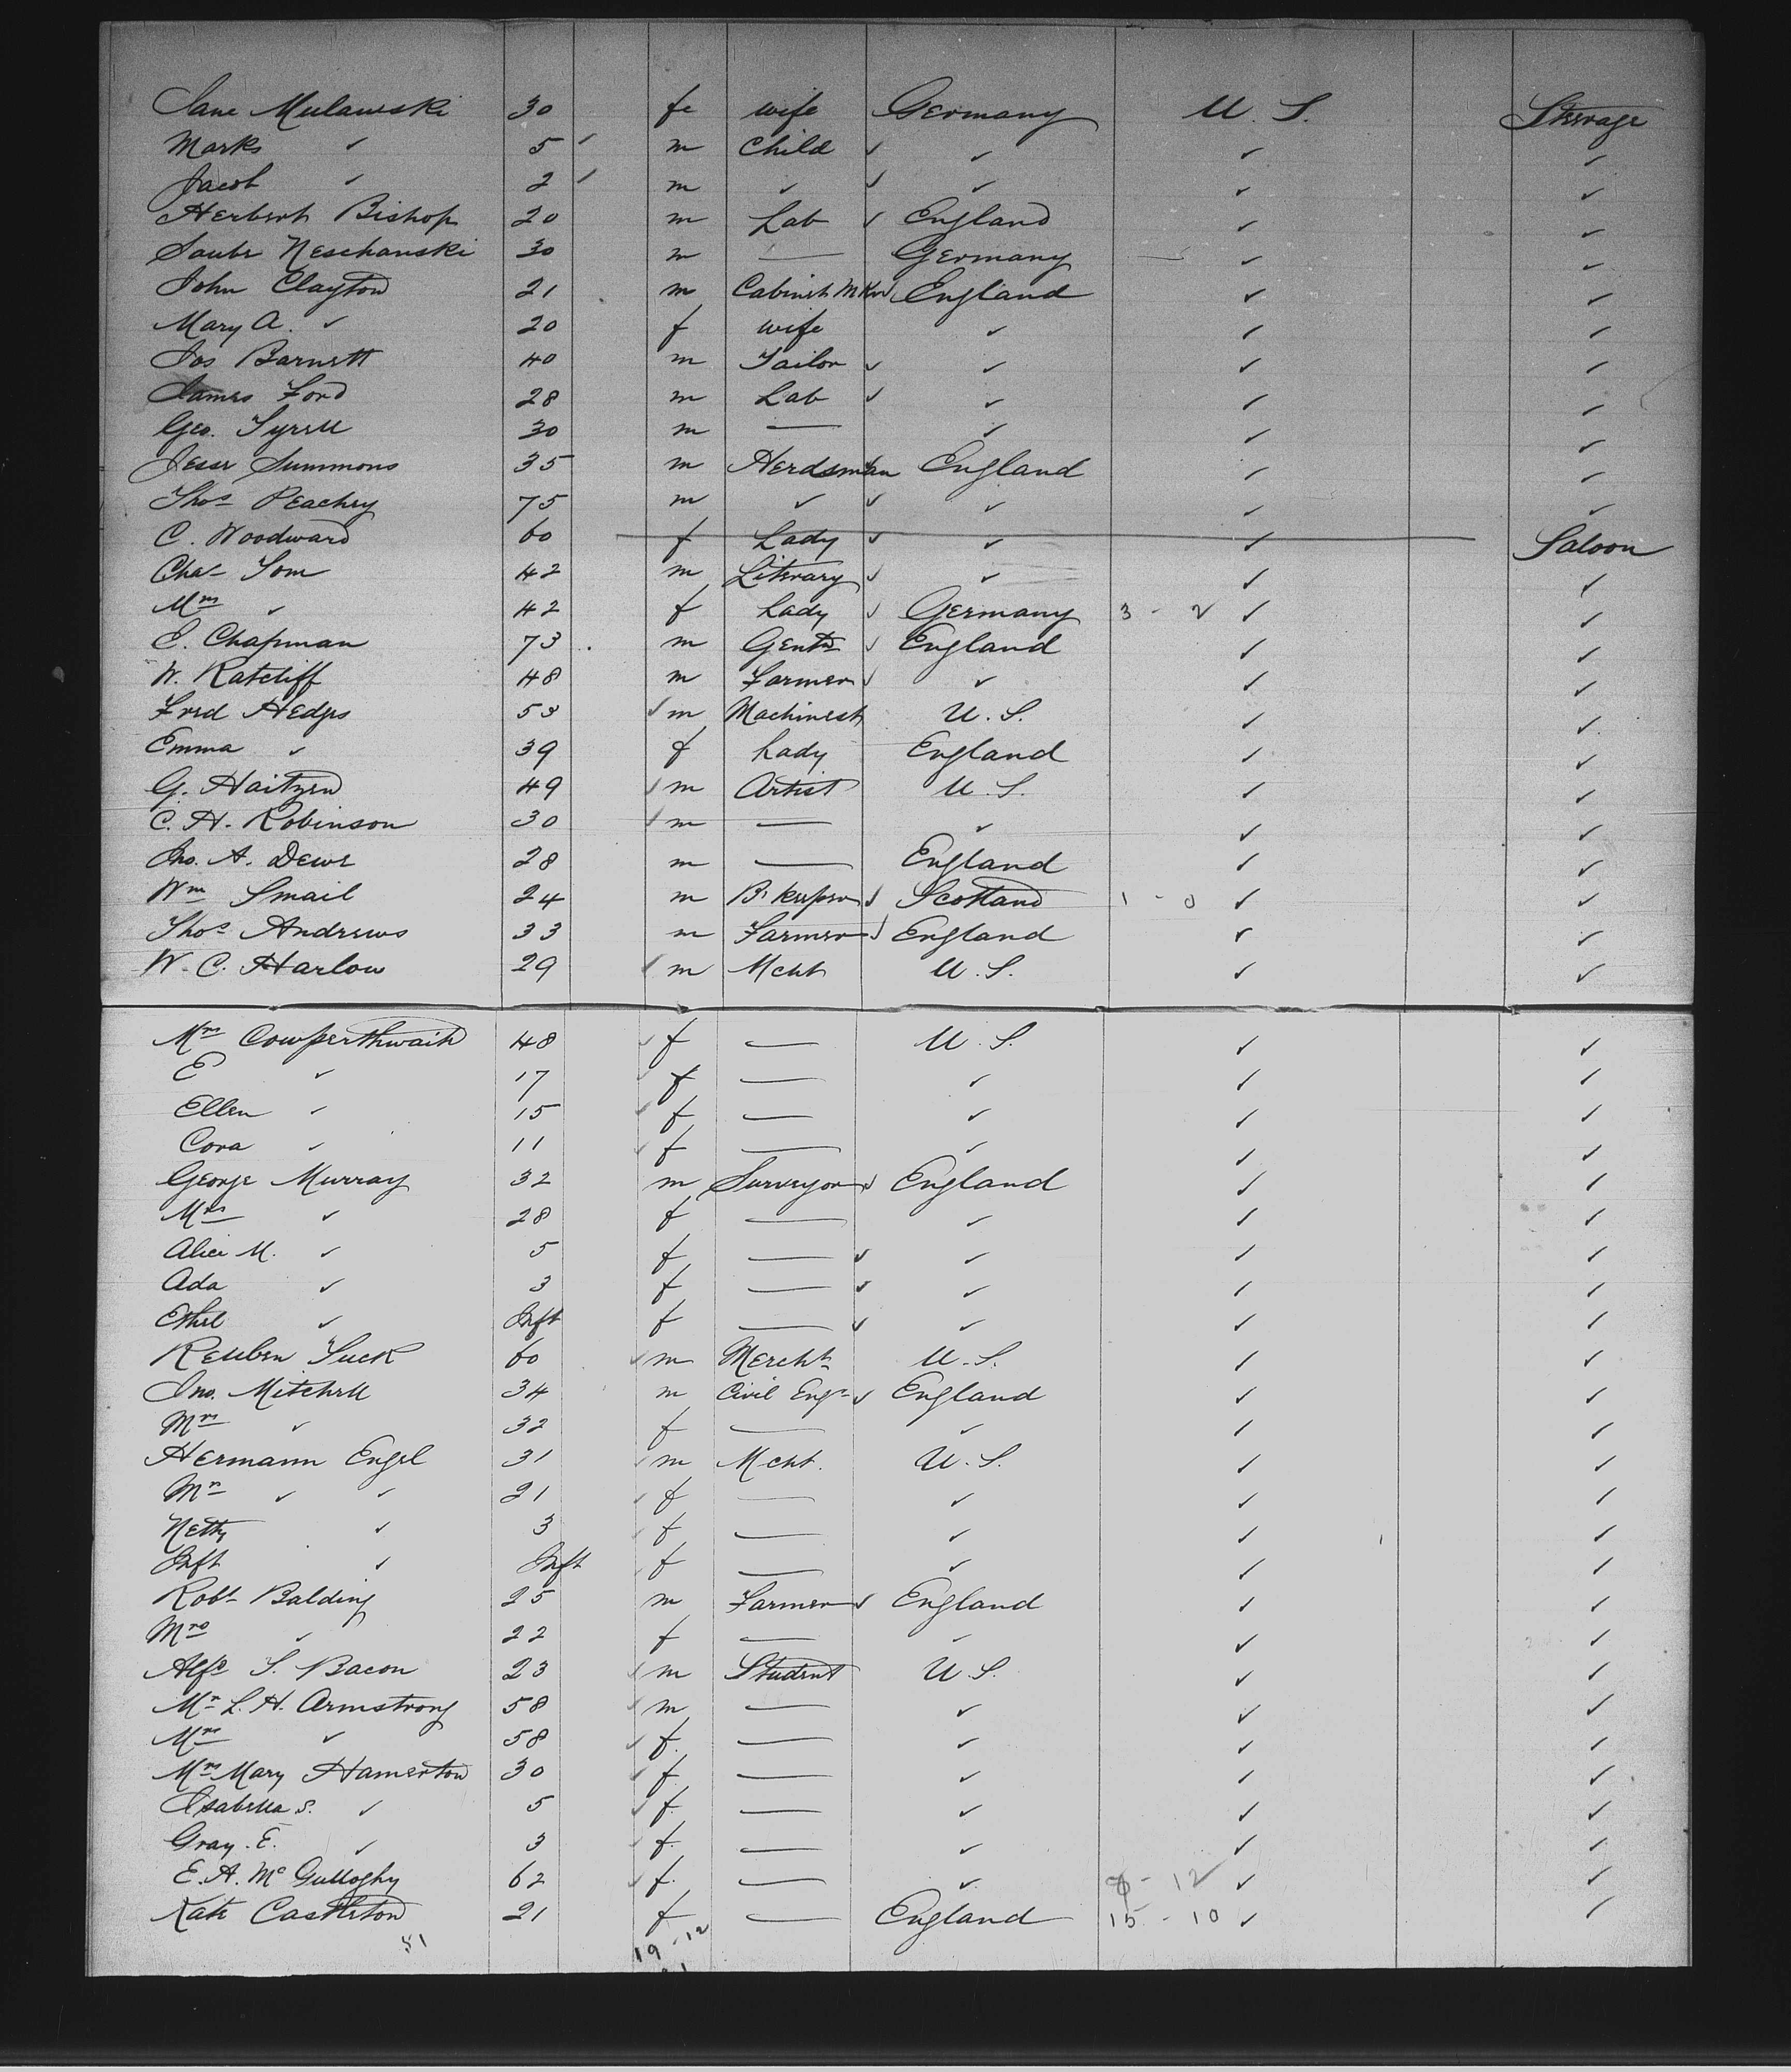 Jane Mulawski 30 fe wife Germany U. S. Steerage
Marks ✓ 5 ✓ m Child ✓ ✓ ✓ ✓
Jacob ✓ 2 ✓ m ✓ ✓ ✓ ✓ ✓
Herbert Bishop 20 m Lab ✓ England ✓ ✓
Neschanski 30 m — Germany — ✓ ✓
John Clayton 21 m Cabinet Mkr ✓ England ✓ ✓
Mary A. ✓ 20 f wife ✓ ✓ ✓
Jos Barnett 40 m Tailor ✓ ✓ ✓ ✓
James Ford 28 m Lab ✓ ✓ ✓ ✓
Geo. Tyrell 30 m — ✓ ✓ ✓
Jesse Summons 35 m Herdsman ✓ England ✓ ✓
Thos Peachey 75 m ✓ ✓ ✓ ✓ ✓
C. Woodward 60 f Lady ✓ ✓ ✓ Saloon
Chas Tom 42 m Literary ✓ ✓ ✓ ✓
Mrs ✓ 42 f Lady ✓ Germany 3 - 2 ✓ ✓
E. Chapman 73 m Gentn ✓ England ✓ ✓
W. Ratcliff 48 m Farmer ✓ ✓ ✓ ✓
Fred Hedges 53 ✓ m Machinest U. S. ✓ ✓
Emma ✓ 39 f Lady England ✓ ✓
G. Haitzen 49 ✓ m Artist U. S. ✓ ✓
C. H. Robinson 30 ✓ m — ✓ ✓ ✓
Jno. A. Dewe 28 m — England ✓ ✓
Wm Smail 24 m B. keeper ✓ Scotland 1 - 0 ✓ ✓
Thos Andrews 33 m Farmer ✓ England ✓ ✓
W. C. Harlow 29 ✓ m Mcht U. S. ✓ ✓
Mrs Cowperthwait 48 ✓ f — U. S. ✓ ✓
E ✓ 17 ✓ f — ✓ ✓ ✓
Ellen ✓ 15 ✓ f — ✓ ✓ ✓
Cora ✓ 11 ✓ f — ✓ ✓ ✓
George Murray 32 m Surveyor ✓ England ✓ ✓
Mrs ✓ 28 f — ✓ ✓ ✓
Alice M. ✓ 5 f — ✓ ✓ ✓ ✓
Ada ✓ 3 f — ✓ ✓ ✓ ✓
Ethel ✓ Inft f — ✓ ✓ ✓ ✓
Reuben Tuck 60 ✓ m Mercht U. S. ✓ ✓
Jno. Mitchell 34 m Civil Engr ✓ England ✓ ✓
Mrs ✓ 32 f — ✓ ✓ ✓
Hermann Engel 31 ✓ m Mcht. U. S. ✓ ✓
Mrs ✓ ✓ 21 ✓ f — ✓ ✓ ✓
Netty ✓ 3 ✓ f — ✓ ✓ ✓
Inft ✓ Inft ✓ f — ✓ ✓ ✓
Robt Balding 25 m Farmer ✓ England ✓ ✓
Mrs ✓ 22 f — ✓ ✓ ✓
Alfd S. Bacon 23 ✓ m Student U. S. ✓ ✓
Mr L. H. Armstrong 58 ✓ m — ✓ ✓ ✓
Mrs ✓ 58 ✓ f. — ✓ ✓ ✓
Mrs Mary Hamerton 30 ✓ f. — ✓ ✓ ✓
Isabella S. ✓ 5 ✓ f. — ✓ ✓ ✓
Gray. E. ✓ 3 ✓ f. — ✓ ✓ ✓
E. A. Mc Gulloghy 62 ✓ f. — ✓ - 12 ✓ ✓
Kate Castleton 21 f — England 15 - 10 ✓ ✓
51 19 - 12